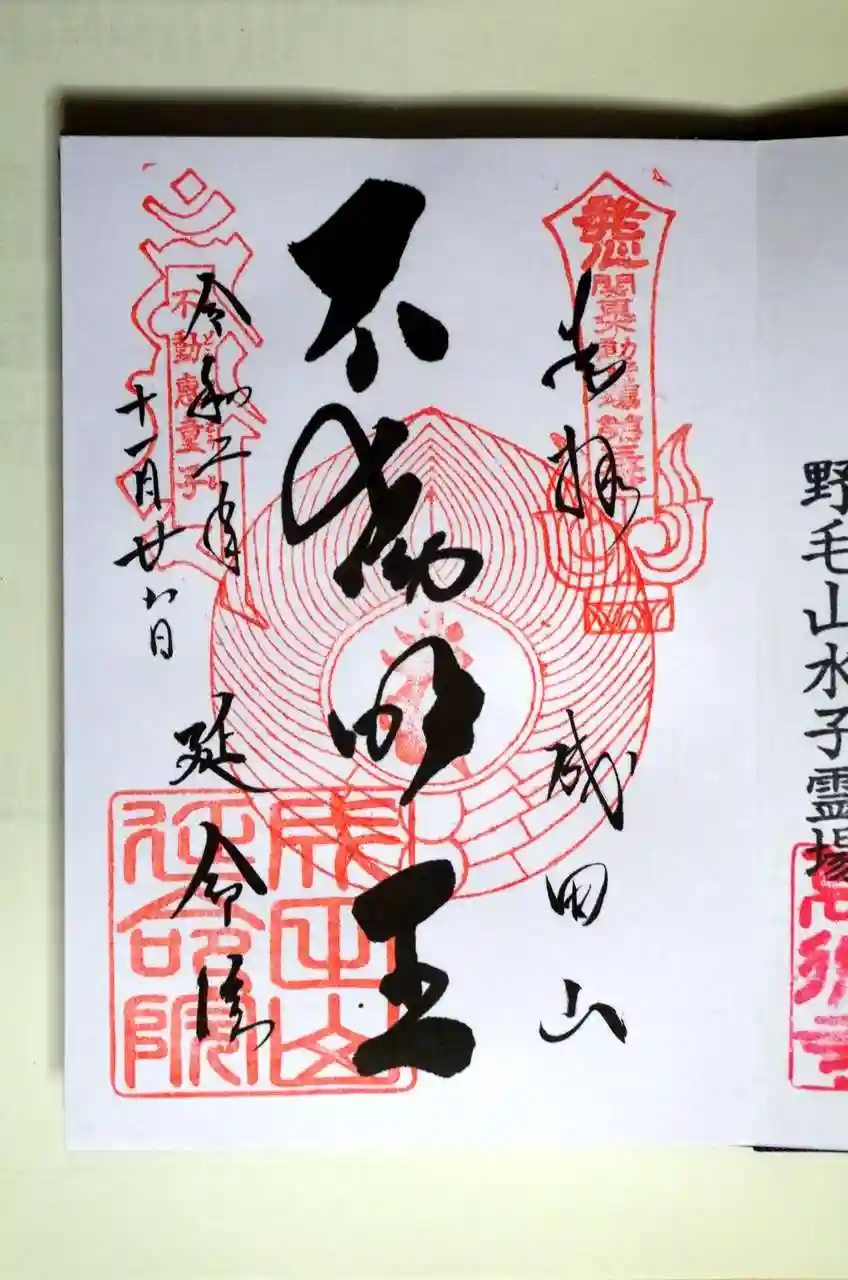 野毛山水子霊場
奉拝
成田山
発心
関東三十六不動霊場第三番
不動明王
令和二年
十一月廿八日
延命院
不動恵童子
成田山
延命院